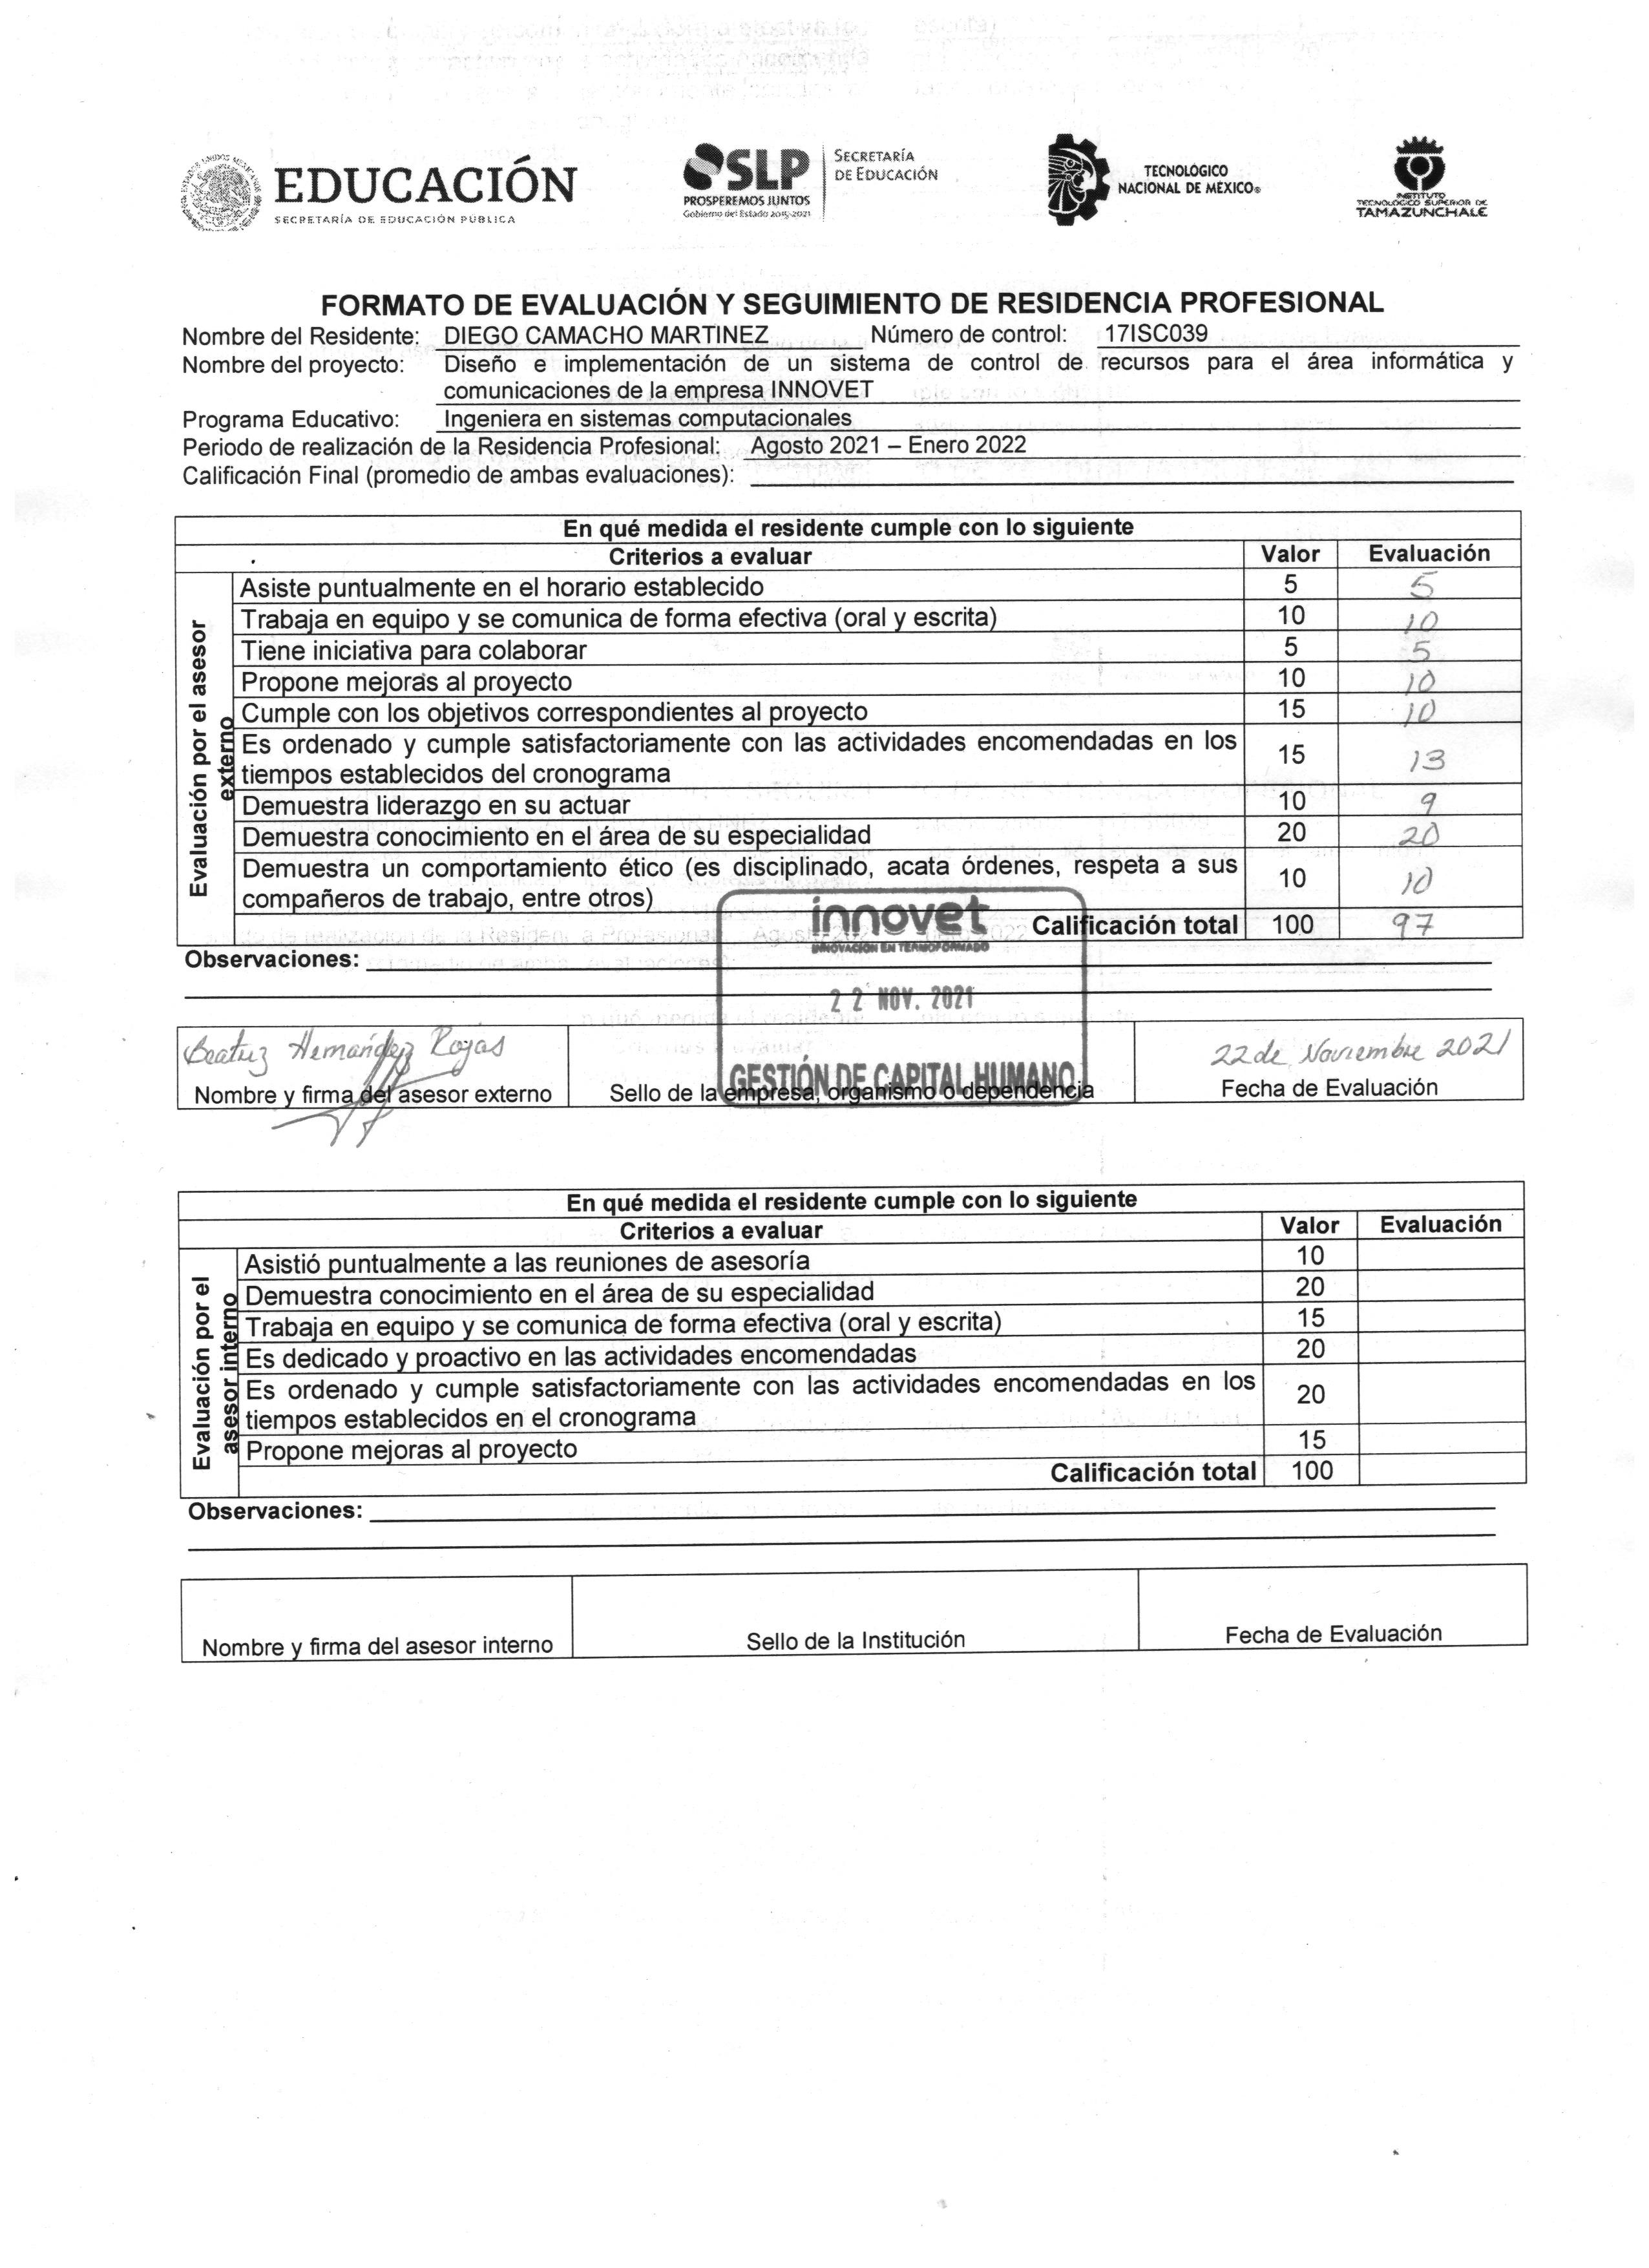 EDUCACIÓN
SECRETARÍA DE EDUCACIÓN PÚBLICA
SLP
PROSPEREMOS JUNTOS
Gobierno del Estado 2015-2021
SECRETARÍA
DE EDUCACIÓN
TECNOLÓGICO
NACIONAL DE MÉXICO®
INSTITUTO
TECNOLÓGICO SUPERIOR DE
TAMAZUNCHALE
FORMATO DE EVALUACIÓN Y SEGUIMIENTO DE RESIDENCIA PROFESIONAL
Nombre del Residente: DIEGO CAMACHO MARTINEZ Número de control: 17ISC039
Nombre del proyecto: Diseño e implementación de un sistema de control de recursos para el área informática y
comunicaciones de la empresa INNOVET
Programa Educativo: Ingeniera en sistemas computacionales
Periodo de realización de la Residencia Profesional: Agosto 2021 – Enero 2022
Calificación Final (promedio de ambas evaluaciones):
En qué medida el residente cumple con lo siguiente
Criterios a evaluar Valor Evaluación
Evaluación por el asesor
externo
Asiste puntualmente en el horario establecido 5 5
Trabaja en equipo y se comunica de forma efectiva (oral y escrita) 10 10
Tiene iniciativa para colaborar 5 5
Propone mejoras al proyecto 10 10
Cumple con los objetivos correspondientes al proyecto 15 10
Es ordenado y cumple satisfactoriamente con las actividades encomendadas en los
tiempos establecidos del cronograma 15 13
Demuestra liderazgo en su actuar 10 9
Demuestra conocimiento en el área de su especialidad 20 20
Demuestra un comportamiento ético (es disciplinado, acata órdenes, respeta a sus
compañeros de trabajo, entre otros) 10 10
Calificación total 100 97
innovet
INNOVACIÓN EN TERMOFORMADO
Observaciones:
22 NOV. 2021
GESTIÓN DE CAPITAL HUMANO
Beatriz Hernández Rojas
22 de Noviembre 2021
Nombre y firma del asesor externo Sello de la empresa, organismo o dependencia Fecha de Evaluación
En qué medida el residente cumple con lo siguiente
Criterios a evaluar Valor Evaluación
Evaluación por el
asesor interno
Asistió puntualmente a las reuniones de asesoría 10
Demuestra conocimiento en el área de su especialidad 20
Trabaja en equipo y se comunica de forma efectiva (oral y escrita) 15
Es dedicado y proactivo en las actividades encomendadas 20
Es ordenado y cumple satisfactoriamente con las actividades encomendadas en los
tiempos establecidos en el cronograma 20
Propone mejoras al proyecto 15
Calificación total 100
Observaciones:
Nombre y firma del asesor interno Sello de la Institución Fecha de Evaluación